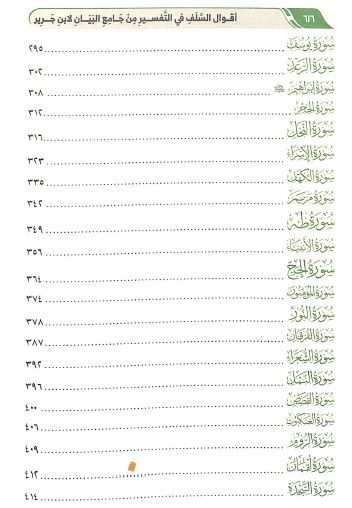 ٦١٦ أقوال السلف في التفسير من جامع البيان لابن جرير
سورة يوسف ٢٩٥
سورة الرعد ٣٠٢
سورة إبراهيم ٣٠٨
سورة الحجر ٣١٢
سورة النحل ٣١٦
سورة الإسراء ٣٢٣
سورة الكهف ٣٣٥
سورة مريم ٣٤٢
سورة طه ٣٤٩
سورة الأنبياء ٣٥٦
سورة الحج ٣٦٤
سورة المؤمنون ٣٧٤
سورة النور ٣٧٨
سورة الفرقان ٣٨٧
سورة الشعراء ٣٩٢
سورة النمل ٣٩٦
سورة القصص ٤٠٠
سورة العنكبوت ٤٠٦
سورة الروم ٤٠٩
سورة لقمان ٤١٢
سورة السجدة ٤١٤